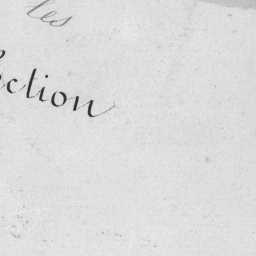 les
ction